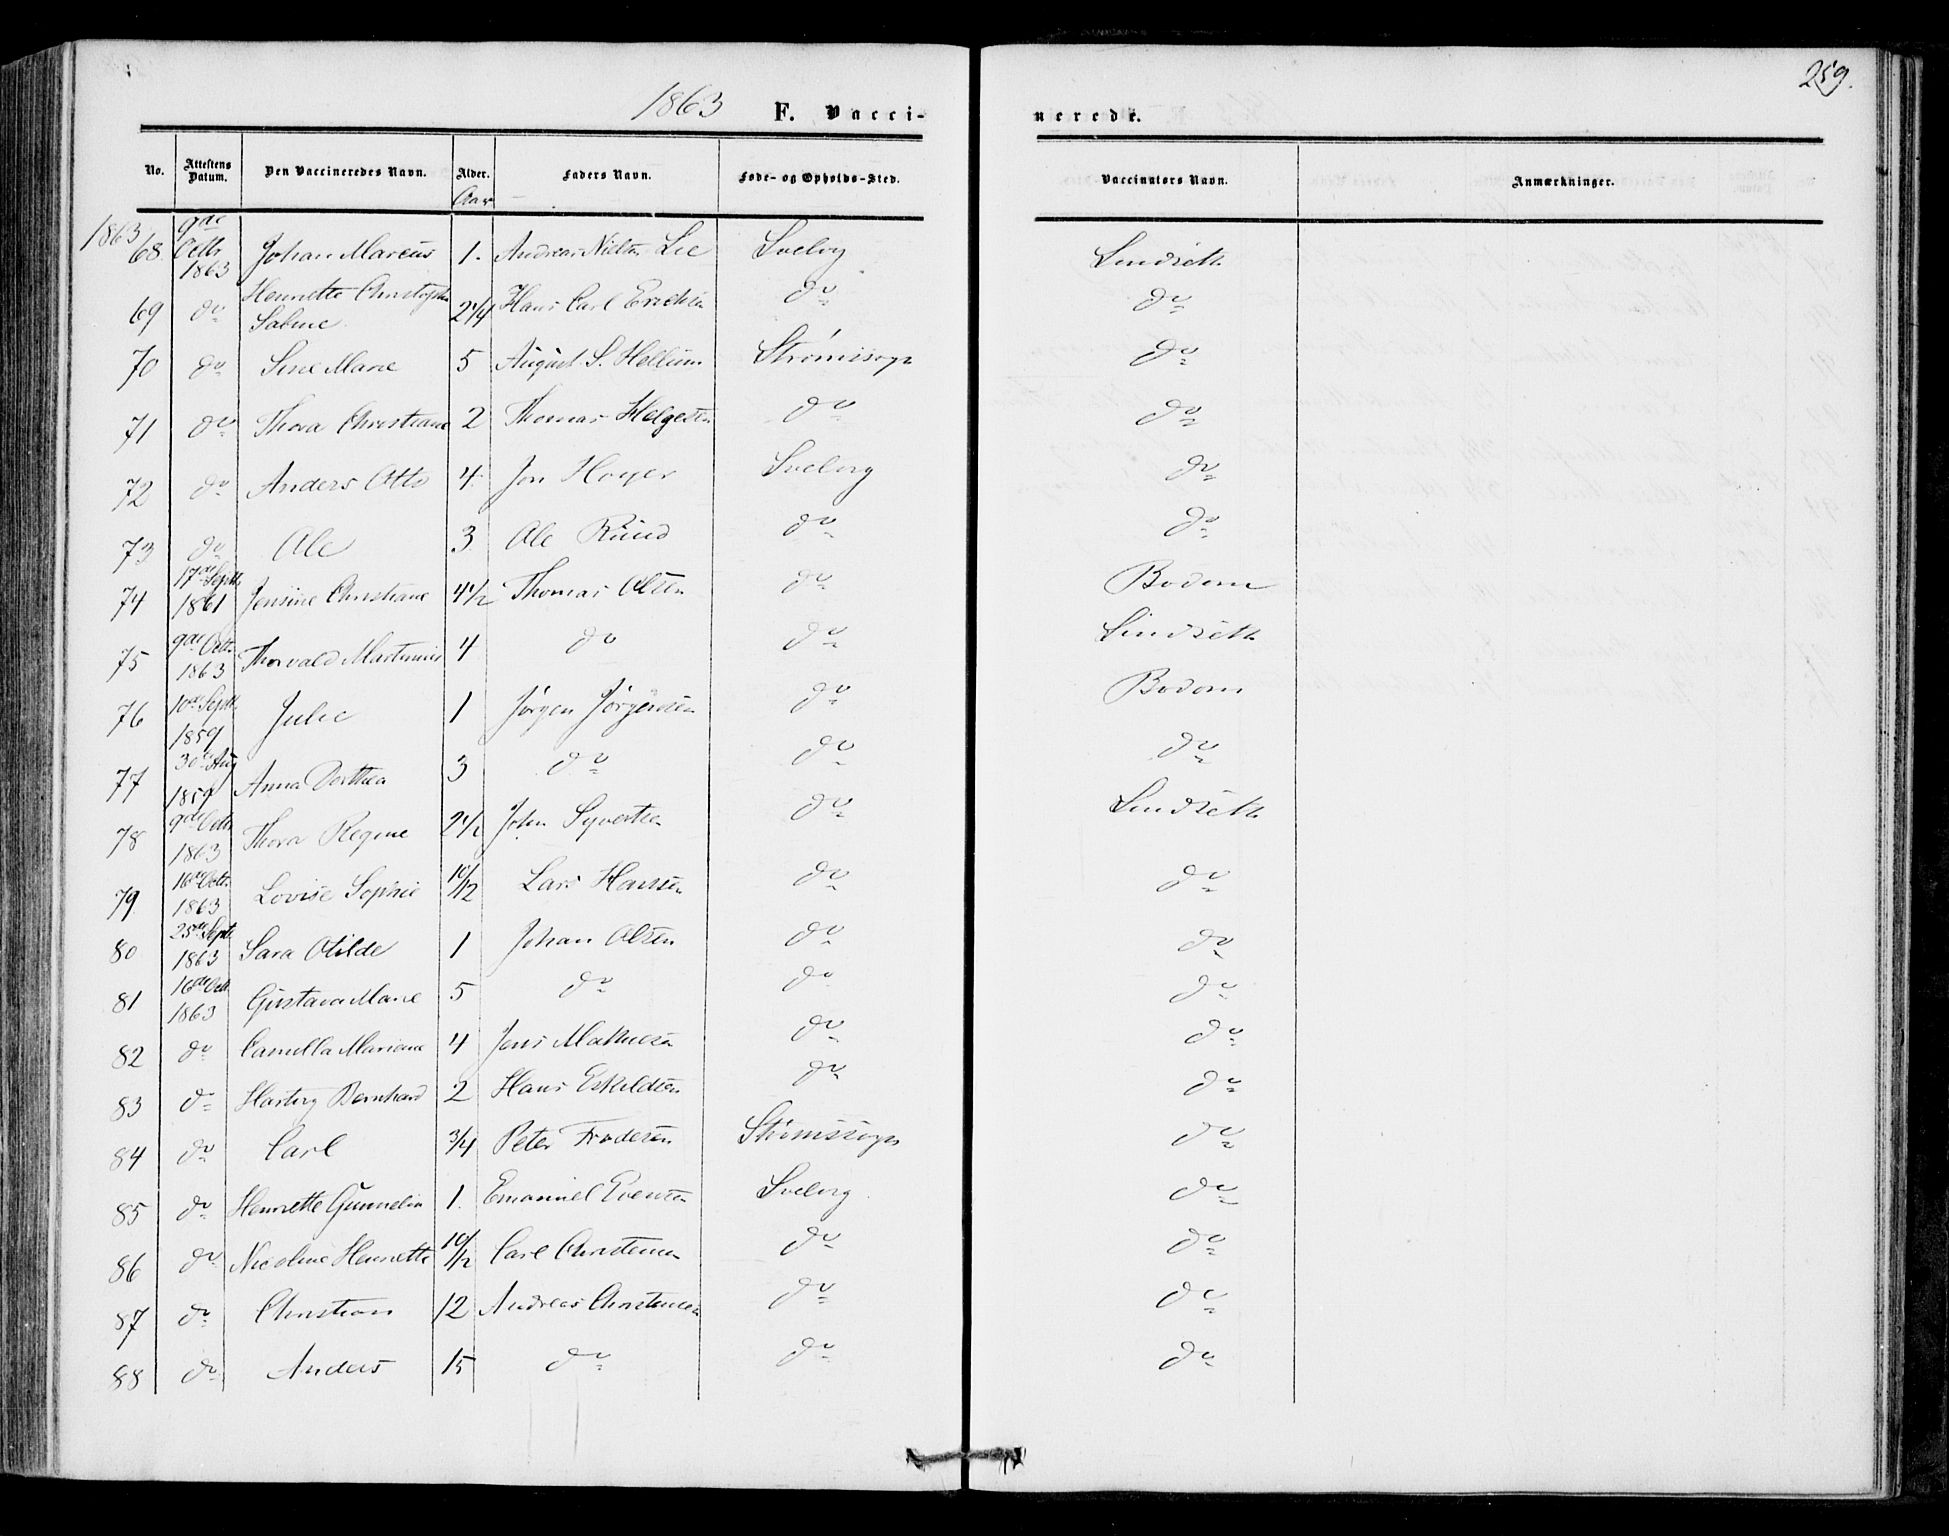 259.
1863 F. Vaccinerede.
No. Attestens Datum. Den Vaccineredes Navn. Alder. Faders Navn. Føde- og Opholds-Sted. Vaccinators Navn. Anmærkninger.
Aar
1863 68 9de Octbr 1863 Johan Marcus 1. Andreas Nielsen Lie Svelvig Lindseth
69 do Henriette Christophine Sabine 2 1/4 Hans Carl Erichsen do do
70 do Sine Marie 5 August S. Hellum Strømssogn do
71 do Thora Christiane 2 Thomas Helgesen do do
72 do Anders Otto 4 Jon Hoyer Svelvig do
73 do Ole 3 Ole Ruud do do
74 17de Septb 1861 Jensine Christiane 4 1/2 Thomas Olsen do Bodom
75 9de Octbr 1863 Thorvald Martinius 4 do do Lindseth
76 10de Septb 1859 Julie 1 Jørgen Jørgensen do Bodom
77 30te Aug 1859 Anna Dorthea 3 do do do
78 9de Octbr 1863 Thora Regine 2 1/2 John Syvertsen do Lindseth
79 16de Octbr 1863 Lovise Sophie 10/12 Lars Hansen do do
80 25de Septb 1863 Sara Otilde 1 Johan Olsen do do
81 16de Octb 1863 Gustava Marie 5 do do do
82 do Camilla Mariane 4 Jens Mathiesen do do
83 do Hartvig Bernhard 2 Hans Eskildsen do do
84 do Carl 3/4 Peter Frodesen Strømssogn do
85 do Henriette Gunnelia 1. Emanuel Evensen Svelvig do
86 do Nicoline Henriette 10/12 Carl Christensen do do
87 do Christian 12 Andreas Christensen do do
88 do Anders 15 do do do